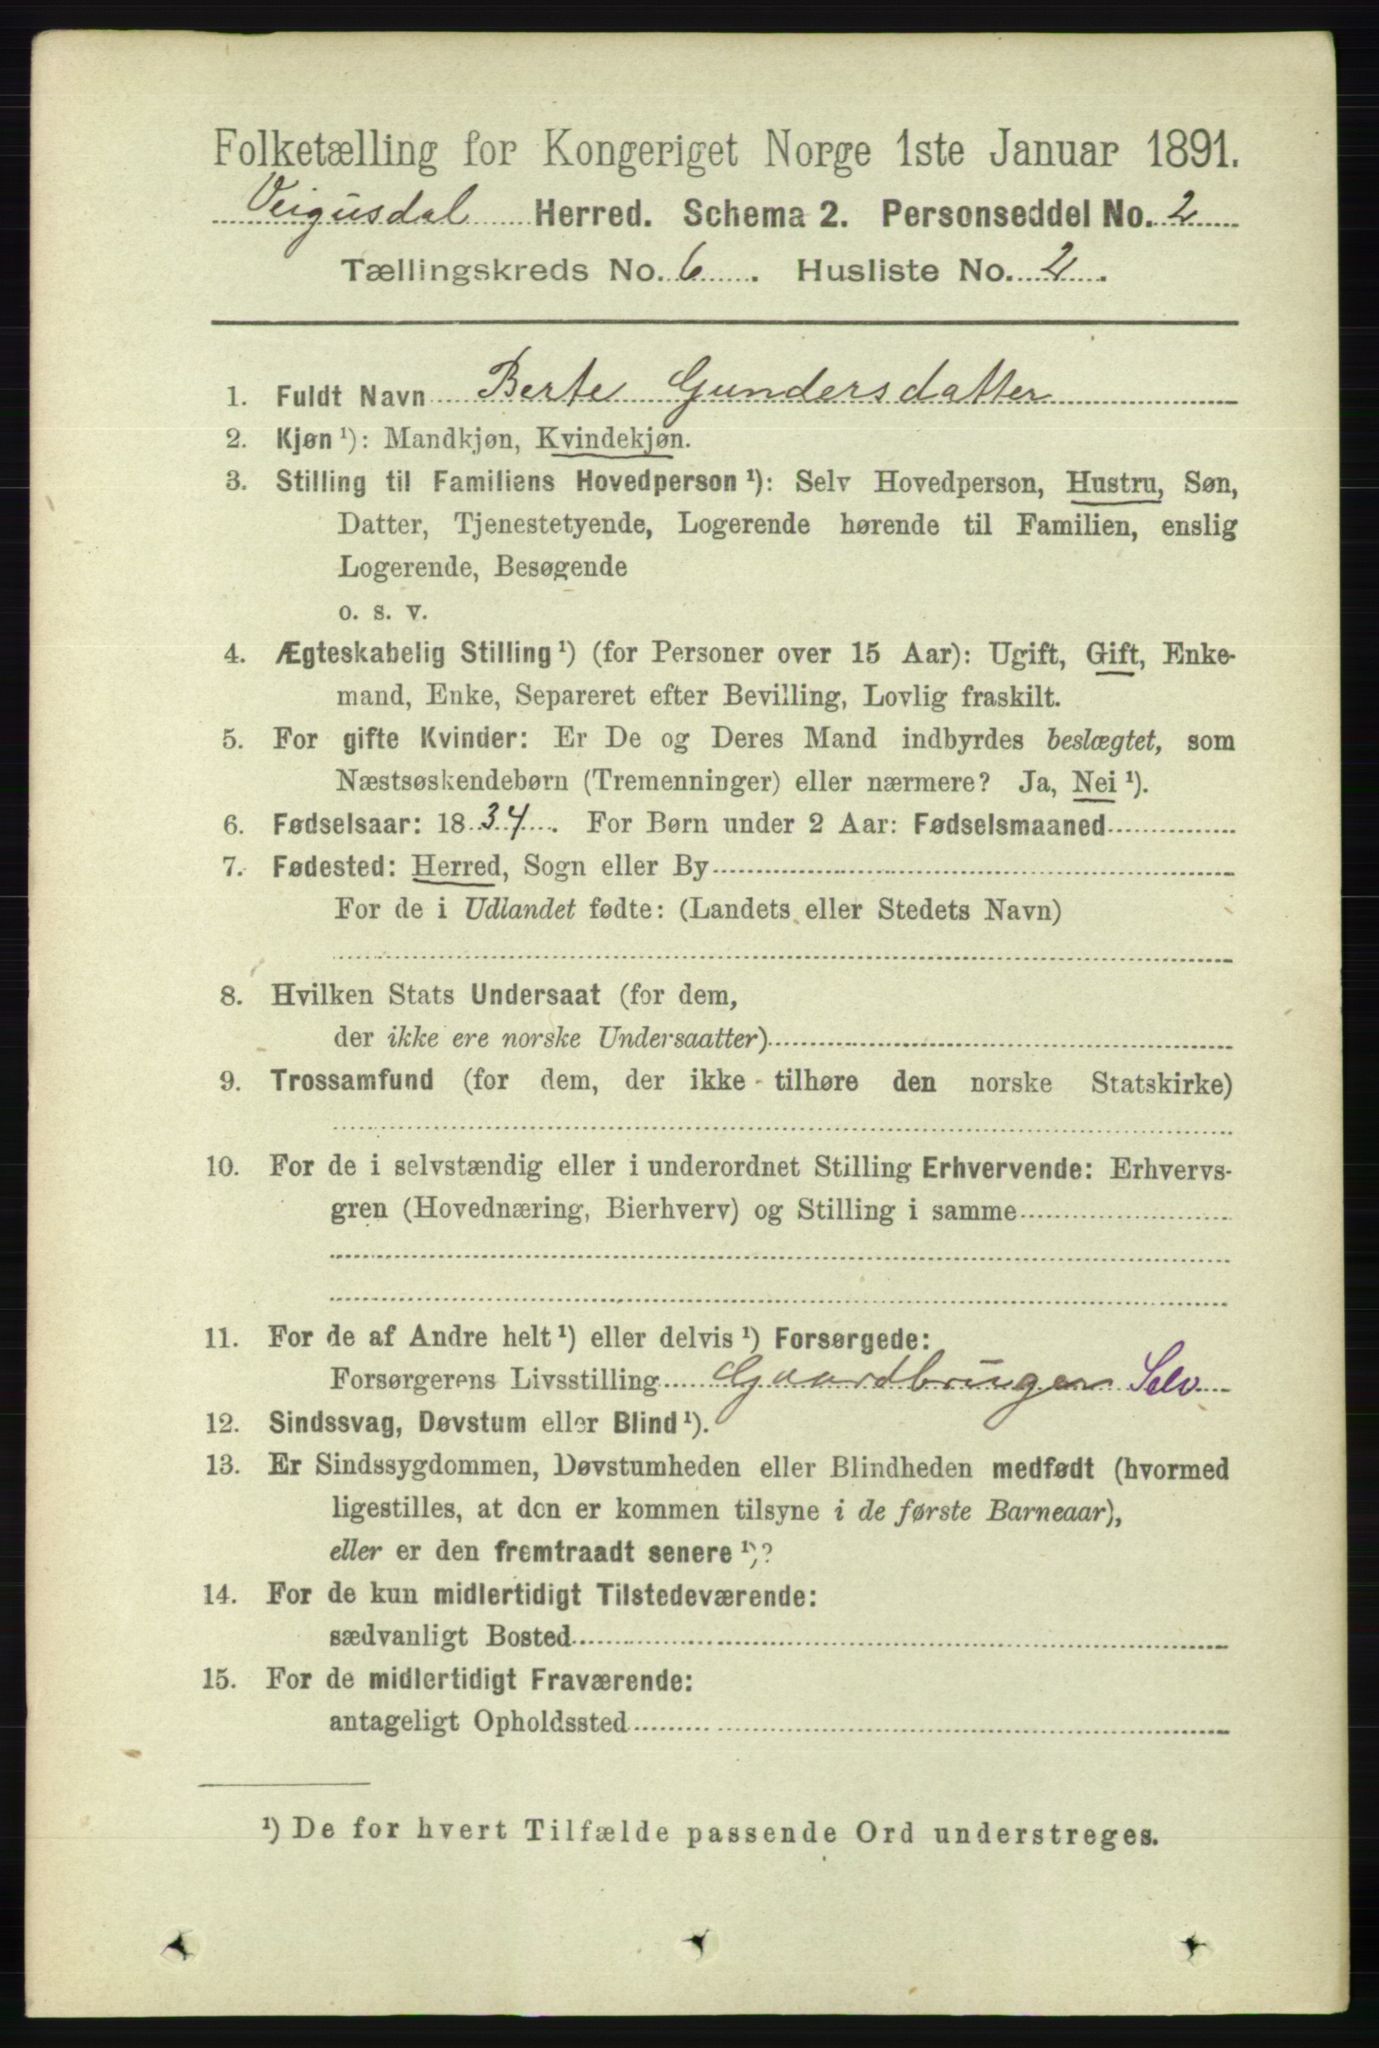 Folketælling for Kongeriget Norge 1ste Januar 1891.
Veigusdal Herred. Schema 2. Personseddel No. 2
Tællingskreds No. 6. Husliste No. 2.
1. Fuldt Navn Berte Gundersdatter
2. Kjøn ¹): Mandkjøn, Kvindekjøn.
3. Stilling til Familiens Hovedperson ¹): Selv Hovedperson, Hustru, Søn,
Datter, Tjenestetyende, Logerende hørende til Familien, enslig
Logerende, Besøgende
o. s. v.
4. Ægteskabelig Stilling ¹) (for Personer over 15 Aar): Ugift, Gift, Enke-
mand, Enke, Separeret efter Bevilling, Lovlig fraskilt.
5. For gifte Kvinder: Er De og Deres Mand indbyrdes beslægtet, som
Næstsøskendebørn (Tremenninger) eller nærmere? Ja, Nei ¹).
6. Fødselsaar: 1834. For Børn under 2 Aar: Fødselsmaaned
7. Fødested: Herred, Sogn eller By
For de i Udlandet fødte: (Landets eller Stedets Navn)
8. Hvilken Stats Undersaat (for dem,
der ikke ere norske Undersaatter)
9. Trossamfund (for dem, der ikke tilhøre den norske Statskirke)
10. For de i selvstændig eller i underordnet Stilling Erhvervende: Erhvervs-
gren (Hovednæring, Bierhverv) og Stilling i samme
11. For de af Andre helt ¹) eller delvis ¹) Forsørgede:
Forsørgerens Livsstilling Gaardbruger Selv
12. Sindssvag, Døvstum eller Blind ¹).
13. Er Sindssygdommen, Døvstumheden eller Blindheden medfødt (hvormed
ligestilles, at den er kommen tilsyne i de første Barneaar),
eller er den fremtraadt senere ¹)?
14. For de kun midlertidigt Tilstedeværende:
sædvanligt Bosted
15. For de midlertidigt Fraværende:
antageligt Opholdssted
¹) De for hvert Tilfælde passende Ord understreges.